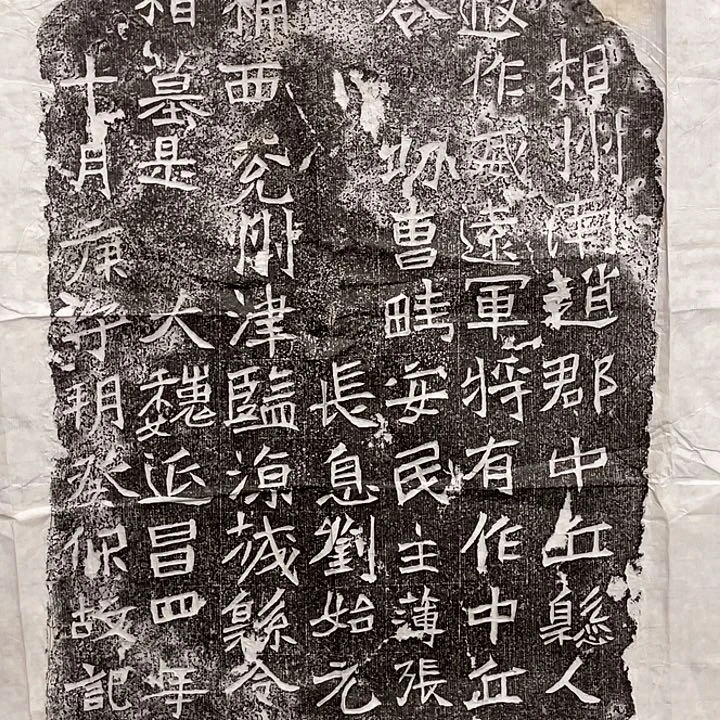 相州南趙郡中丘縣人
遐作威遠軍將有作中丘
令 曹疇安民主薄張
長息劉始元
西兗州津臨縣令
相墓是 大魏延昌四年
十月庚朔故記